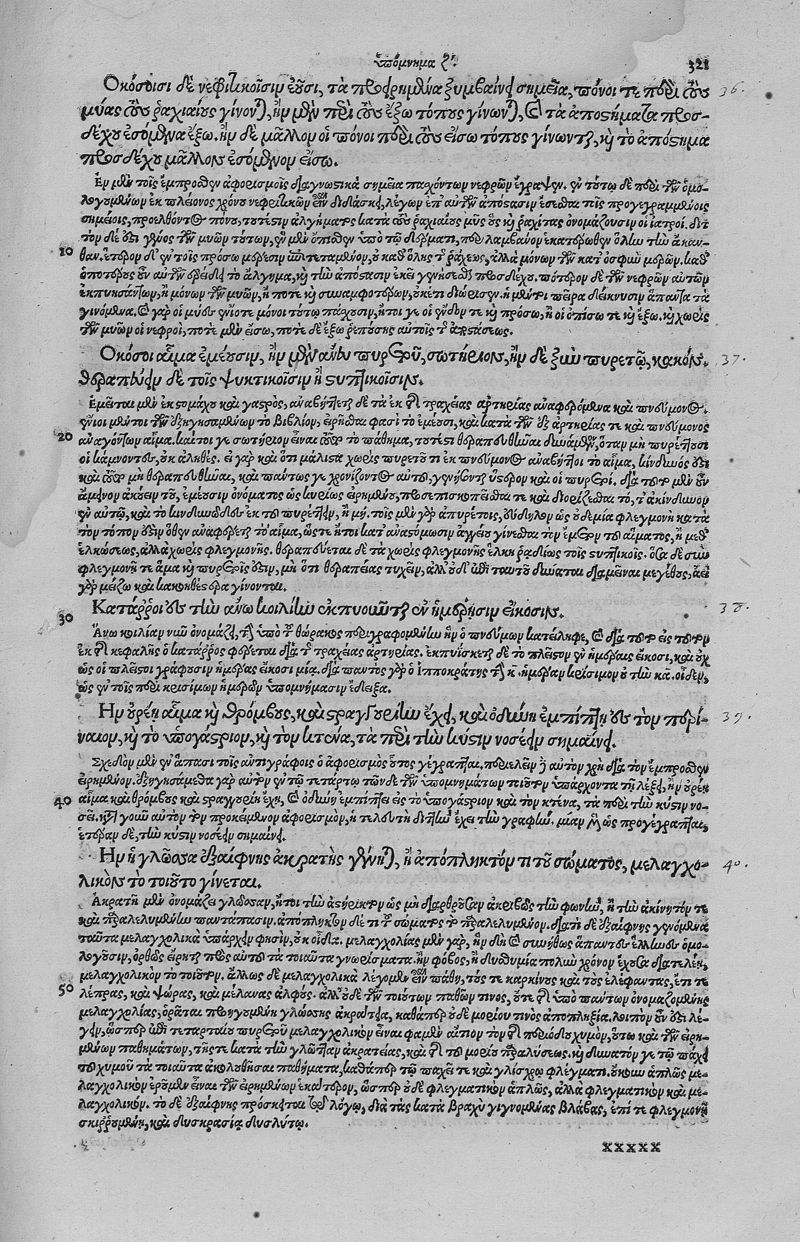 ὑπόμνημα ζʹ. 321
Ὁκόσοισι δὲ νεφριτικοῖσιν ἐοῦσι, τὰ προειρημένα ξυμβαίνει σημεῖα, πόνοι τε περὶ τοὺς 36.
μύας τοὺς ῥαχιαίους γίνονται, ἢν μὲν περὶ τοὺς ἔξω τόπους γίνωνται, καὶ τὰ ἀποστήματα προσ-
δέχου ἐσόμενα ἔξω. ἢν δὲ μᾶλλον οἱ πόνοι περὶ τοὺς εἴσω τόπους γίνωνται, καὶ τὸ ἀπόστημα
προσδέχου μᾶλλον ἐσόμενον εἴσω.
Ἐν μὲν τοῖς ἔμπροσθεν ἀφορισμοῖς διαγνωστικὰ σημεῖα πασχόντων νεφρῶν ἔγραψεν. ἐν τούτῳ δὲ περὶ τῶν ὁμο-
λογουμένων ἐκ πλείονος χρόνου νεφριτικῶν εἶναι διδάσκει, λέγων ἐπ' αὐτῶν ἀπόστασιν ἔσεσθαι τοῖς προγεγραμμένοις
σημείοις, προσελθόντος πόνου, τουτέστιν ἀλγήματος κατὰ τοὺς ῥαχιαίους μῦς οὓς καὶ ῥαχίτας ὀνομάζουσιν οἱ ἰατροί. διτ-
τὸν δέ ἐστι γένος τῶν μυῶν τούτων, ἓν μὲν ὄπισθεν ὑπὸ τῷ δέρματι, περιλαμβάνον ἑκατέρωθεν ὅλην τὴν ἄκαν-
10 θαν. ἕτερον δὲ ἐν τοῖς πρόσω μέρεσιν ὑποτεταμένον, οὐ καθ' ὅλης τῆς ῥάχεως, ἀλλὰ μόνων τῶν κατ' ὀσφὺν μερῶν. καθ'
ὁποτέρους ἂν αὐτῶν ἐρείδῃ τὸ ἄλγημα, καὶ τὴν ἀπόστασιν ἐκεῖ γενήσεσθαι προσδέχου. πότερον δὲ τῶν νεφρῶν αὐτῶν
ἐκπυησάντων, ἢ μόνων τῶν μυῶν, ἤ ποτε καὶ συναμφοτέρων, οὐκέτι διώρισεν. ἡ μέντοι πεῖρα δείκνυσιν ἅπαντα τὰ
γινόμενα. καὶ γὰρ οἱ μύες ἐνίοτε μόνοι τοῦτο πάσχουσιν, ἤτοι γε οἱ ἔνδον τε καὶ πρόσω, ἢ οἱ ὀπίσω τε καὶ ἔξω. καὶ χωρὶς
τῶν μυῶν οἱ νεφροί, ποτὲ μὲν εἴσω, ποτὲ δὲ ἔξω ῥεπούσης αὐτοῖς τῆς ἀποστάσεως.
Ὁκόσοι αἷμα ἐμέουσιν, ἢν μὲν ἄνευ πυρετοῦ, σωτήριον, ἢν δὲ ξὺν πυρετῷ, κακόν. 37.
θεραπεύειν δὲ τοῖς ψυκτικοῖσιν ἢ στυπτικοῖσιν.
Ἐμεῖται μὲν ἐκ στομάχου καὶ γαστρός, ἀναβήττεται δὲ τὰ ἐκ τῆς τραχείας ἀρτηρίας ἀναφερόμενα καὶ πνεύμονος.
ἔνιοι μέντοι τῶν ἐξηγησαμένων τὸ βιβλίον, εἰρῆσθαί φασι τὸ ἐμέουσι, καὶ κατὰ τῶν ἐξ ἀρτηρίας τε καὶ πνεύμονος
20 ἀναγόντων αἷμα. καίτοι γε σωτήριον εἶναι τοῦτο τὸ πάθημα, τουτέστι θεραπευθῆναι δυνάμενον, ὅταν μὴ πυρέττωσι
οἱ κάμνοντες, οὐκ ἀληθές. εἰ γὰρ καὶ ὅτι μάλιστα χωρὶς πυρετοῦ τι ἐκ πνεύμονος ἀναβήττοι τὸ αἷμα, κίνδυνός ἐστι
καὶ τοῦτο μὴ θεραπευθῆναι, καὶ πάντως γε χρονίζοντος αὐτοῦ, γενήσονται ὕστερον καὶ οἱ πυρετοί. διὰ τοῦτο μὲν οὖν
ἄμεινον ἀκούειν τοῦ, ἐμέουσιν ὀνόματος ὡς κυρίως εἰρημένου, προσεπισκοπεῖσθαί τε καὶ διορίζεσθαι τό, τε ἀκίνδυνον
ἐν αὐτῷ, καὶ τὸ κινδυνῶδες ἐκ τοῦ πυρέττειν, ἢ μή. τοῖς μὲν γὰρ ἀπυρέτοις, εὔδηλον ὡς οὐδεμία φλεγμονὴ κατὰ
τὸν τόπον ἐστὶν ὅθεν ἀναφέρεται τὸ αἷμα, ὥστε ἤτοι κατ' ἀναστόμωσιν ἀγγείου γίνεσθαι τὸν ἔμετον τοῦ αἵματος, ἢ μεθ'
ἑλκώσεως, ἀλλὰ χωρὶς φλεγμονῆς. θεραπεύεται δὲ τὰ χωρὶς φλεγμονῆς ἕλκη ῥᾳδίως τοῖς στυπτικοῖς. ὅσα δὲ σὺν
φλεγμονῇ τε ἅμα καὶ πυρετοῖς ἐστιν, μὴ ὅτι θεραπείας τυχεῖν, ἀλλ' οὐδ' ἐπὶ ταὐτοῦ δύναται διαμεῖναι μεγέθους, ἀεὶ
γὰρ μείζω καὶ κακοηθέστερα γίνονται.
30 Κατάῤῥοι ἐς τὴν ἄνω κοιλίην ἐκπυοῦνται ἐν ἡμέρῃσιν εἴκοσιν. 38.
Ἄνω κοιλίαν νῦν ὀνομάζει, τὴν ὑπὸ τοῦ θώρακος περιγραφομένην ἣν ὁ πνεύμων κατείληφε, καὶ διὰ τοῦτο εἰς τοῦτον
ἐκ τῆς κεφαλῆς ὁ κατάῤῥους φέρεται διὰ τῆς τραχείας ἀρτηρίας. ἐκπυΐσκεται δὲ τὸ πλεῖστον ἐν ἡμέραις εἴκοσι, καὶ οὐχ
ὡς οἱ πλεῖστοι γράφουσιν ἡμέρας εἴκοσι μίᾳ. διὰ παντὸς γὰρ ὁ Ἱπποκράτης τὴν κʹ. ἡμέραν κρίσιμον οὐ τὴν κα. οἶδεν,
ὡς ἐν τοῖς περὶ κρισίμων ἡμερῶν ὑπομνήμασιν ἔδειξα.
Ἢν οὐρέῃ αἷμα καὶ θρόμβους, καὶ στραγγουρίην ἔχῃ, καὶ ὀδύνη ἐμπίπτῃ ἐς τὸν περί- 39.
ναιον, καὶ τὸ ὑπογάστριον, καὶ τὸν κτένα, τὰ περὶ τὴν κύστιν νοσέειν σημαίνει.
Σχεδὸν μὲν ἐν ἅπασι τοῖς ἀντιγράφοις ὁ ἀφορισμὸς οὗτος γέγραπται, περιελεῖν δ' αὐτὸν χρὴ διὰ τὸν ἔμπροσθεν
εἰρημένον. ἐξηγησάμεθα γὰρ αὐτὸν ἐν τῷ τετάρτῳ τῶνδε τῶν ὑπομνημάτων τοιοῦτον ὑπάρχοντα τῇ λέξει, ἢν οὐρέῃ
40 αἷμα καὶ θρόμβους καὶ στραγγουρίη ἔχῃ, καὶ ὀδύνη ἐμπίπτει εἰς τὸ ὑπογάστριον καὶ τὸν κτένα, τὰ περὶ τὴν κύστιν νο-
σεῖ. γοῦν αὐτὸν τὸν προκείμενον ἀφορισμόν, ἡ τελευτὴ διττὴν ἔχει τὴν γραφήν. μίαν μὲν ὡς προγέγραπται,
ἑτέραν δέ, τὴν κύστιν νοσέειν σημαίνει.
Ἢν ἡ γλῶσσα ἐξαίφνης ἀκρατὴς γένηται, ἢ ἀπόπληκτόν τι τοῦ σώματος, μελαγχο- 40.
λικὸν τὸ τοιοῦτο γίνεται.
Ἀκρατῆ μὲν ὀνομάζει γλῶσσαν, ἤτοι τὴν ἀστήρικτον ὡς μὴ διαρθροῦσαν ἀκριβῶς τὴν φωνήν, ἢ τὴν ἀκίνητόν τε
καὶ παραλελυμένην παντάπασιν. ἀπόπληκτον δέ τι τοῦ σώματος τὸ παραλελυμένον. διὰ τί δὲ ἐξαίφνης γενόμενα
ταῦτα μελαγχολικὰ ὑπάρχειν φησίν, οὐκ οἶδα. μελαγχολίας μὲν γάρ, ἣν δὴ καὶ συνήθως ἅπαντες Ἕλληνες ὁμο-
λογοῦσιν, ὀρθῶς εἴρηται πρὸς αὐτοῦ τὰ τοιαῦτα γνωρίσματα. ἢν φόβος, ἢ δυσθυμία πολὺν χρόνον ἔχουσα διατελέῃ,
μελαγχολικὸν τὸ τοιοῦτον. ἄλλως δὲ μελαγχολικὰ λέγομεν εἶναι πάθη, τούς τε καρκίνους καὶ τοὺς ἐλέφαντας, ἔτι τε
50 λέπρας, καὶ ψώρας, καὶ μέλανας ἀλφούς. ἀλλ' οὐδὲ τῶν τοιούτων παθῶν τινος, οὔτε τῆς ὑπὸ πάντων ὀνομαζομένης
μελαγχολίας, ὁρᾶται προηγουμένη γλώσσης ἀκράτεια, καθάπερ οὐδὲ μορίου τινὸς ἀποπληξία. λοιπὸν οὖν ἐστι λέ-
γειν, ὥσπερ ἐπὶ τεταρταίου πυρετοῦ μελαγχολικὸν εἶναι φαμὲν αἴτιον τὸν περιουσίᾳ χυμόν, οὕτω καὶ τῶν εἰρη-
μένων παθημάτων, τῆς τε κατὰ τὴν γλῶτταν ἀκρατείας, καὶ τῆς τοῦ μορίου παραλύσεως. καὶ δυνατόν γε τῷ πάχει
τοῦ χυμοῦ τὰ τοιαῦτα ἀκολουθῆσαι παθήματα, καθάπερ τῷ παχεῖ τε καὶ γλίσχρῳ φλέγματι. οὔκουν ἁπλῶς με-
λαγχολικὸν ἐροῦμεν εἶναι τῶν εἰρημένων ἑκάτερον, ὥσπερ οὐδὲ φλεγματικὸν ἁπλῶς, ἀλλὰ φλεγματικὸν καὶ με-
λαγχολικόν. τὸ δὲ ἐξαίφνης πρόσκειται τῷ λόγῳ, διὰ τὰς κατὰ βραχὺ γιγνομένας βλάβας, ἐπί τε φλεγμονῇ
σκιῤῥουμένῃ, καὶ δυσκρασίᾳ δυσλύτῳ.
xxxxx